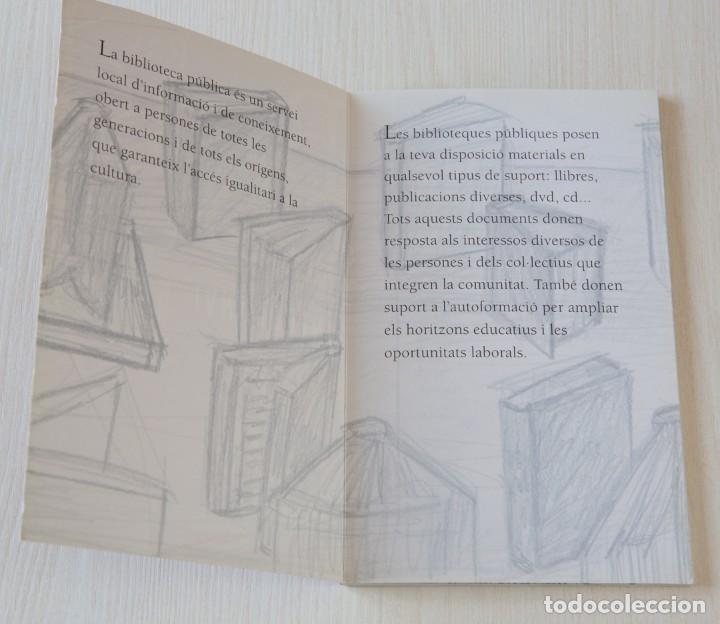 La biblioteca pública és un servei
local d'informació i de coneixement,
obert a persones de totes les
generacions i de tots els orígens,
que garanteix l'accés igualitari a la
cultura.
Les biblioteques públiques posen
a la teva disposició materials en
qualsevol tipus de suport: llibres,
publicacions diverses, dvd, cd...
Tots aquests documents donen
resposta als interessos diversos de
les persones i dels col·lectius que
integren la comunitat. També donen
suport a l'autoformació per ampliar
els horitzons educatius i les
oportunitats laborals.
todocoleccion